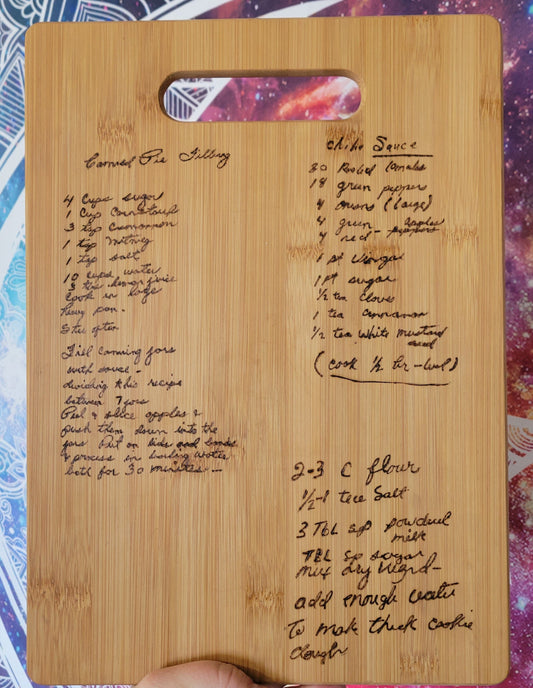 Canned Pie Filling
4 Cups sugar
1 Cup Cornstarch
3 tsp Cinnamon
1 tsp Nutmeg
1 tsp salt
10 cups water
3 tbs lemon juice
Cook in large
heavy pan.
Stir often
Fill canning jars
with sauce -
dividing this recipe
between 7 jars
Peel & slice apples &
push them down into the
jars Put on lids and bands
& process in boiling water
bath for 30 minutes. -
Sauce
30 Peeled tomatoes
18 green peppers
4 onions (large)
4 green apples
4 red - peppers
1 pt Vinegar
1 pt sugar
1/2 tea Cloves
1 tea Cinnamon
1/2 tea White mustard
seed
(cook 1/2 hr -
2-3 C flour
1/2-1 Salt
3 TBL sp powdered
milk
TBL sp sugar
mix dry ingrd-
add enough water
To make thick cookie
dough